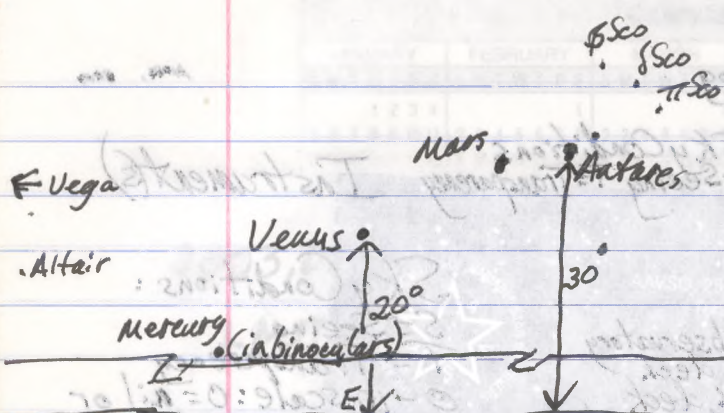 βSco
δSco
πSco
Mars
Antares
← Vega
Venus
. Altair
30°
20°
Mercury (in binoculars)
E